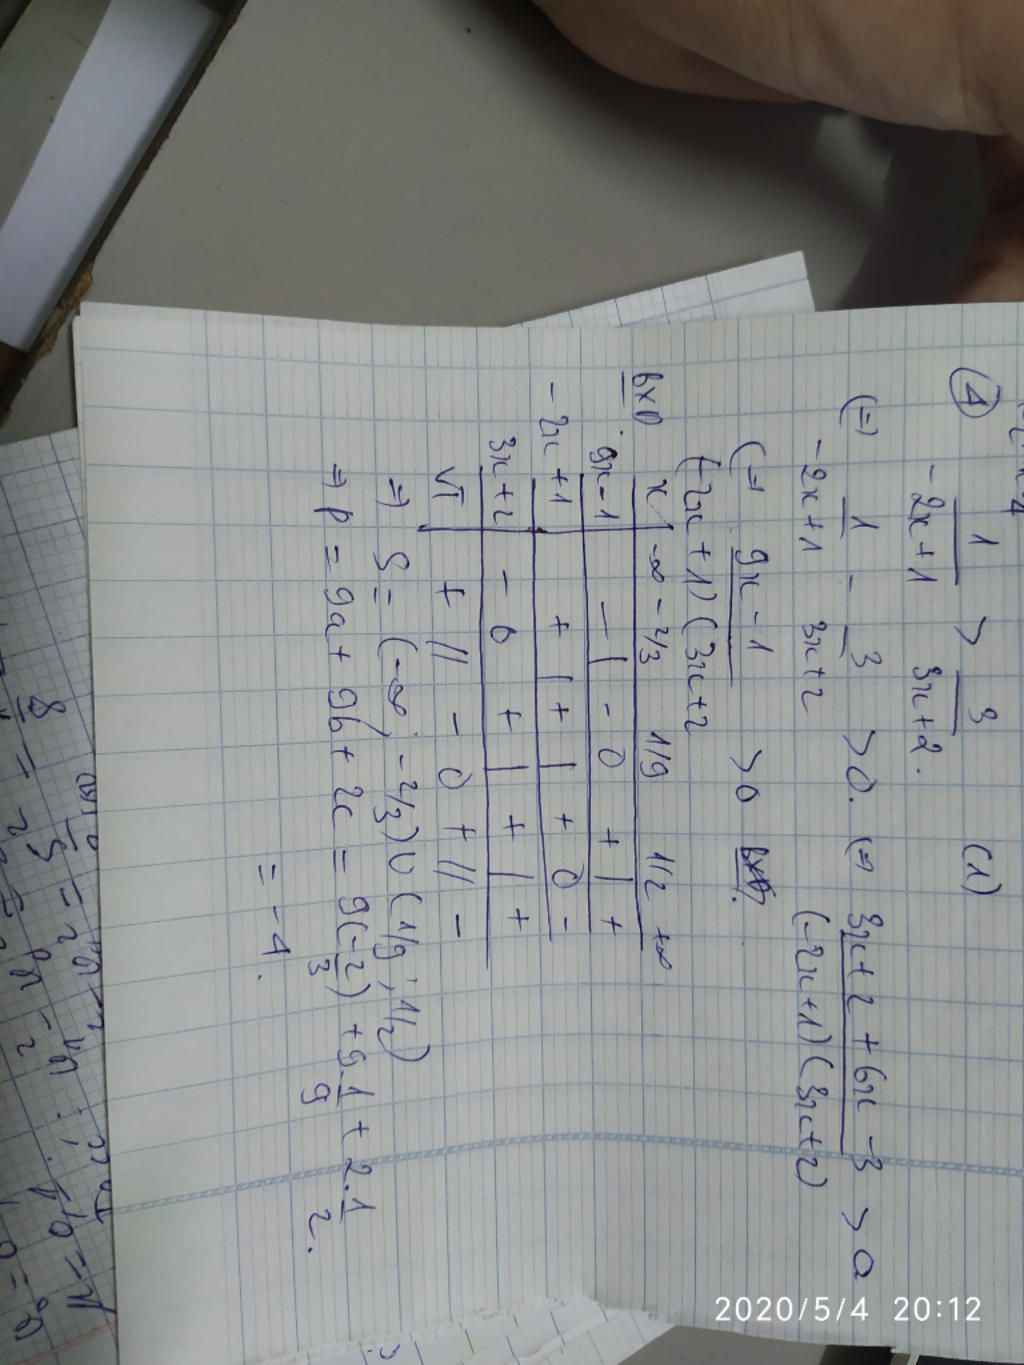 ① 1/(-2x+1) > 3/(3x+2). (1)
(=) 1/(-2x+1) - 3/(3x+2) > 0. (=) (3x+2+6x-3)/((-2x+1)(3x+2)) > 0
(=) (9x-1)/((-2x+1)(3x+2) > 0
BXD x -∞ -2/3 1/9 1/2 +∞
9x-1 - | - 0 + | +
-2x+1 + | + | + 0 -
3x+2 - 0 + | + | +
VT + || - 0 + || -
=) S = (-∞; -2/3) ∪ (1/9; 1/2)
=) P = 9a + 9b + 2c = 9(-2/3) + 9.1/9 + 2.1/2.
= -4.
2020/5/4 20:12